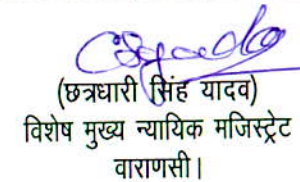 (छत्रधारी सिंह यादव)
विशेष मुख्य न्यायिक मजिस्ट्रेट
वाराणसी।